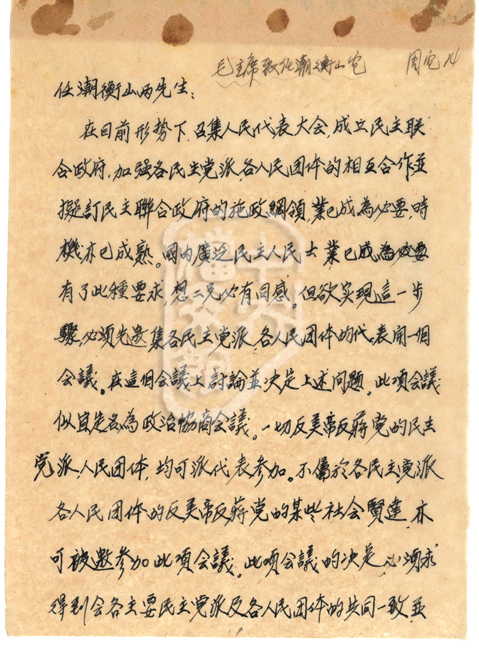 毛主席致任潮衡山电
周电
任潮衡山两先生：
在目前形势下，召集人民代表大会，成立民主联
合政府，加强各民主党派各人民团体的相互合作並
擬訂民主聯合政府的施政綱領，業已成為必要，時
機亦已成熟。國内廣泛民主人民士業已成為必要
有了此種要求，想二兄必有同感。但欲实現這一步
驟，必須先邀集各民主党派、各人民团体的代表開一個
会議。在這個会議上討論並决定上述问题。此項会議
似宜定名為政治协商会議。一切反美帝反蔣党的民主
党派、人民团体，均可派代表参加。不屬於各民主党派
各人民团体的反美帝反蔣党的某些社会賢達，亦
可被邀参加此項会議。此項会議的决定，必須求
得到会各主要民主党派及各人民团体的共同一致，並